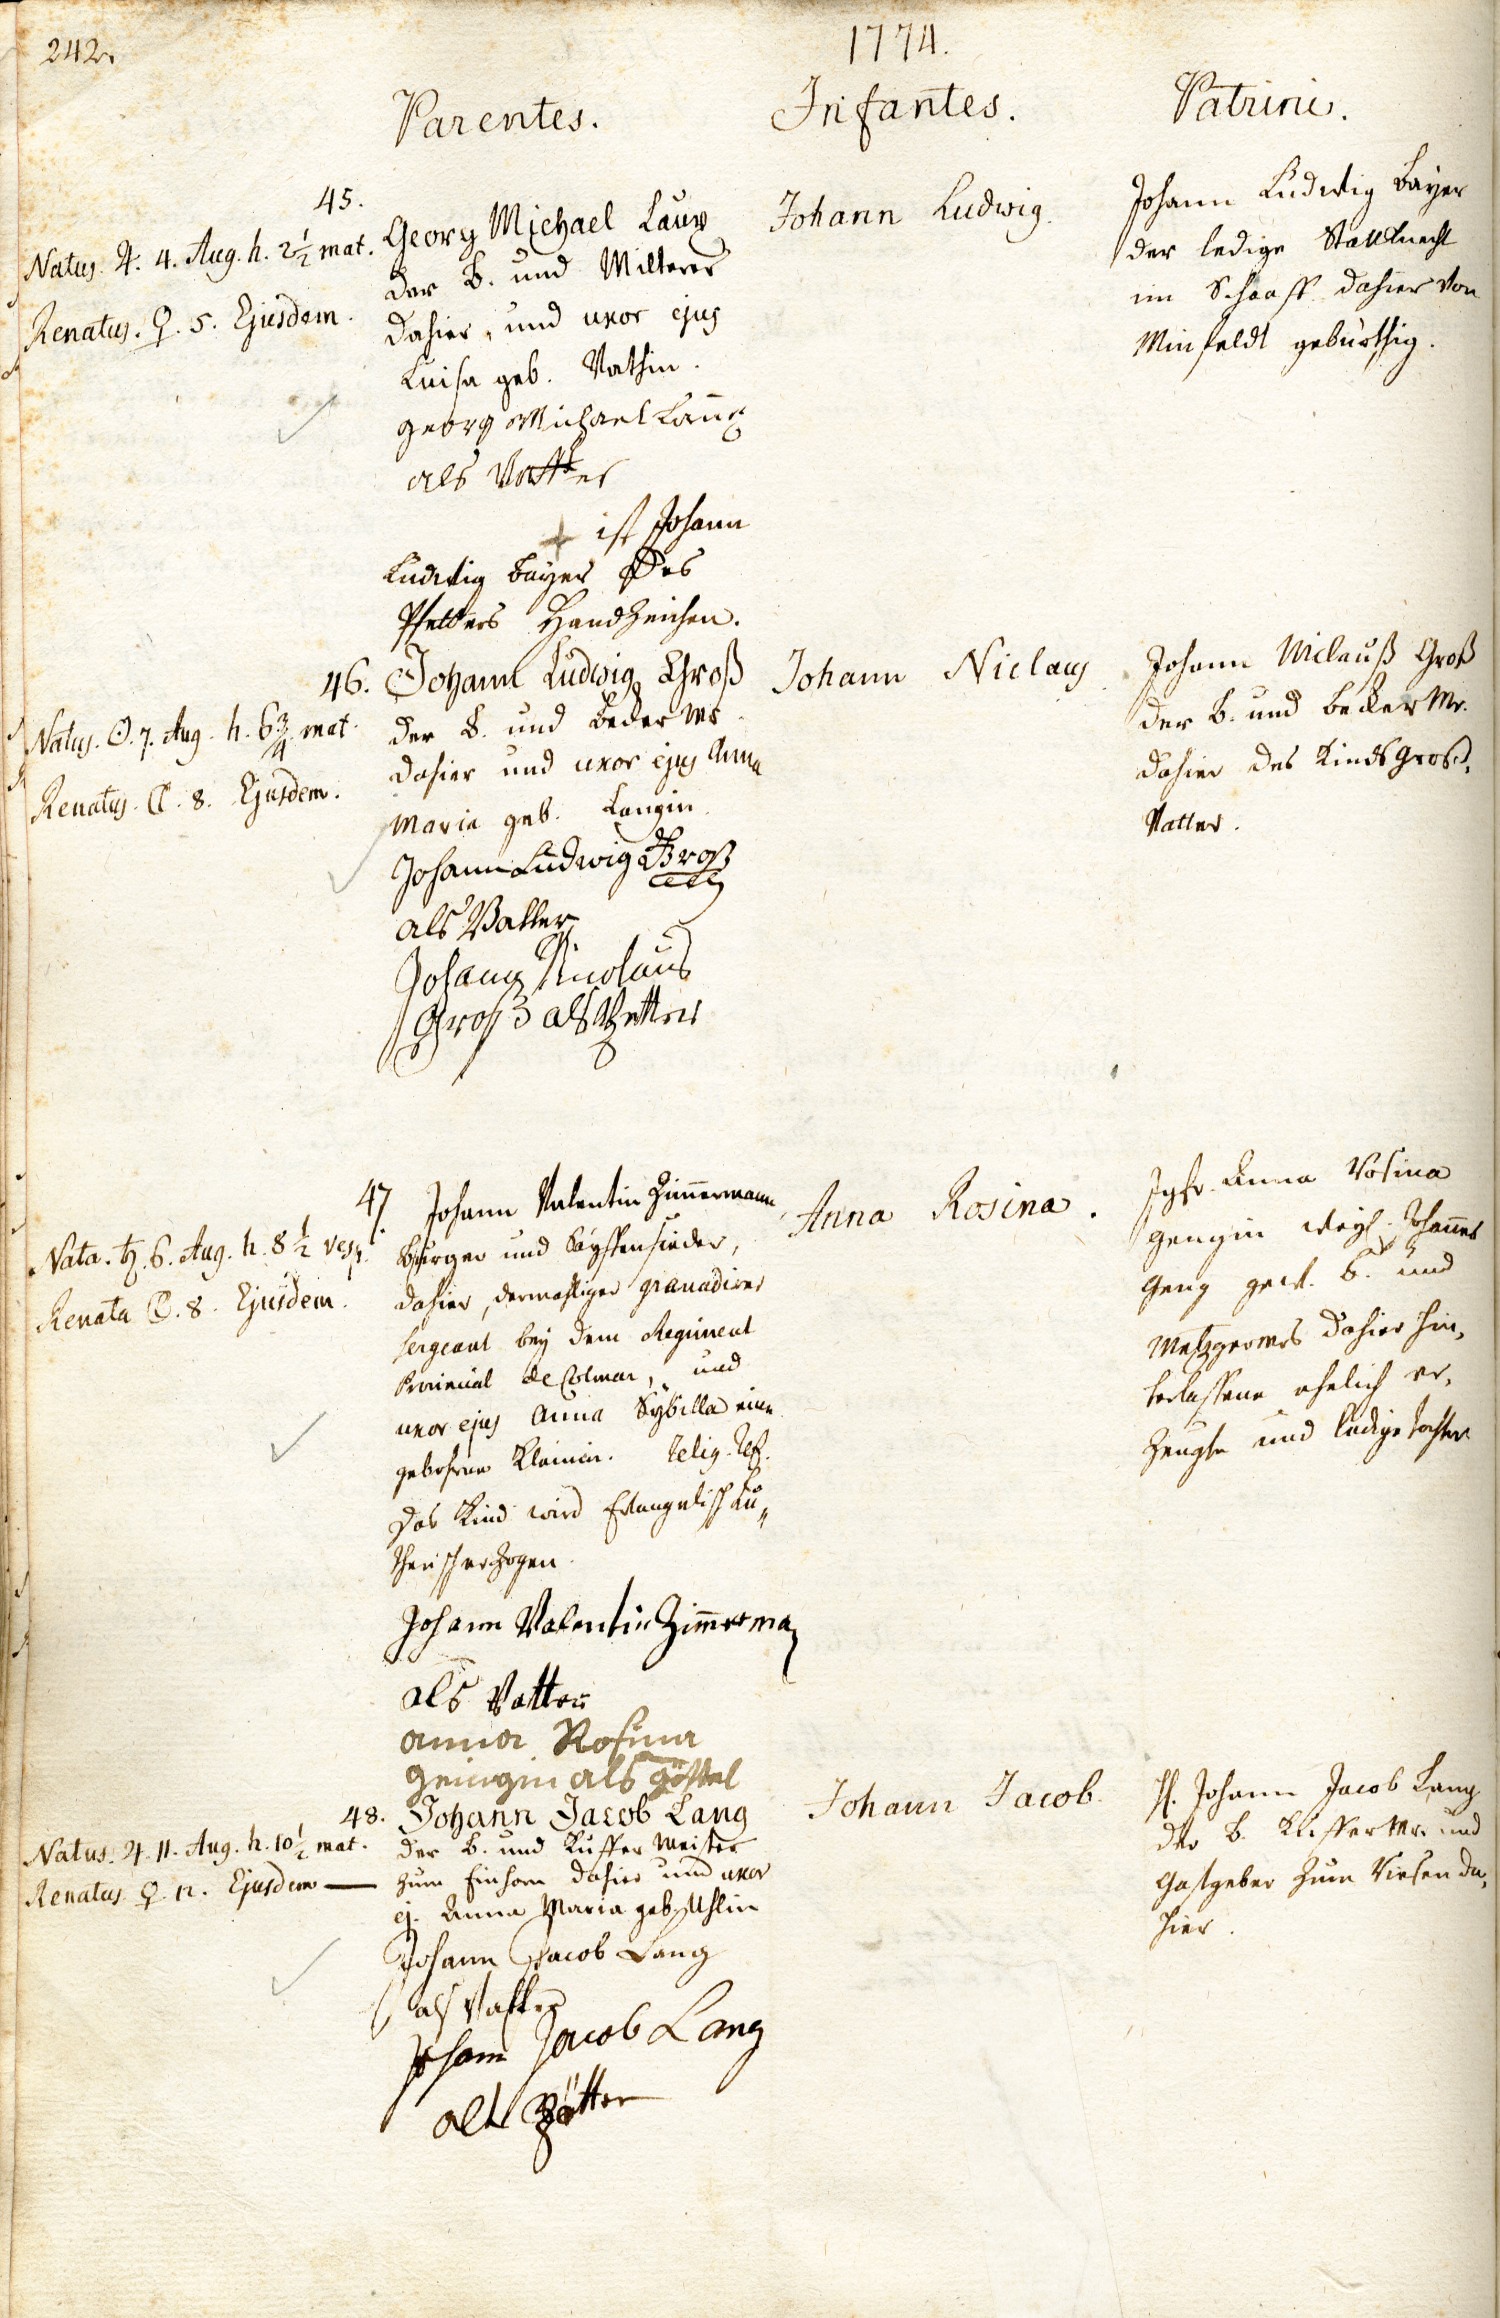 242.
1774.
Parentes.
Infantes.
Patrini.
45.
Natus. ♃. 4. Aug. h. 2½ mat.
Renatus. ♀. 5. Ejusdem.
Georg Michael Laux
der B. und
dahier, und uxor ejus
Luisa geb. Vathin.
georg Michael Laux
als Vatter
+ ist Johann
Ludwig Bayer des
Pfetters Handzeichen.
Johann Ludwig.
Johann Ludwig Bayer
der ledige Stallknecht
im Schaaff dahier von
Minfeldt gebürthig.
46.
Natus. ☉. 7. Aug. h. 6¾ mat.
Renatus. ☾. 8. Ejusdem.
Johann Ludwig Groß
der B. und Becker Mr.
dahier und uxor ejus Anna
Maria geb. Langin.
Johann Ludwig Groß
als Vatter
Johann Nicolaus
Groß als Pfetter
Johann Niclaus
Johann Niclauß Groß
der B. und Becker Mr.
dahier des Kinds Gros-
Vatter.
47.
Nata. ♄. 6. Aug. h. 8½ vesp.
Renata ☾. 8. Ejusdem.
Johann Valentin Zimmermann
Burger und Sayffensieder,
dahier, dermahliger granadirer
sergeant bey dem Regiment
Provincial de Colmar, und
uxor ejus Anna Sÿbilla eine
gebohrne Kleinin. Relig. Ref.
Das Kind wird Evangelisch Lu„
therisch erzogen.
Johann Valentin Zimmerman
als Vatter
anna Rosina
gengin als göttel
Anna Rosina.
Jgfr. Anna Rosina
Gengin weyl. Johannes
Geng gew. B. und
Metzgermrs dahier hin„
terlassene ehelich er„
zeugte und ledige Tochter
48.
Natus. ♃. 11. Aug. h. 10½ mat.
Renatus ♀. 12. Ejusdem —
Johann Jacob Lang
der B. und Kuffer Meister
zum Einhorn dahier und uxor
ej. Anna Maria geb. Uhlin
Johann Jacob Lang
als Vatter
Johann Jacob Lang
als Pfötter
Johann Jacob.
H. Johann Jacob Lang
der B. Kuffer Mr. und
Gastgeber zum Riesen da„
hier.